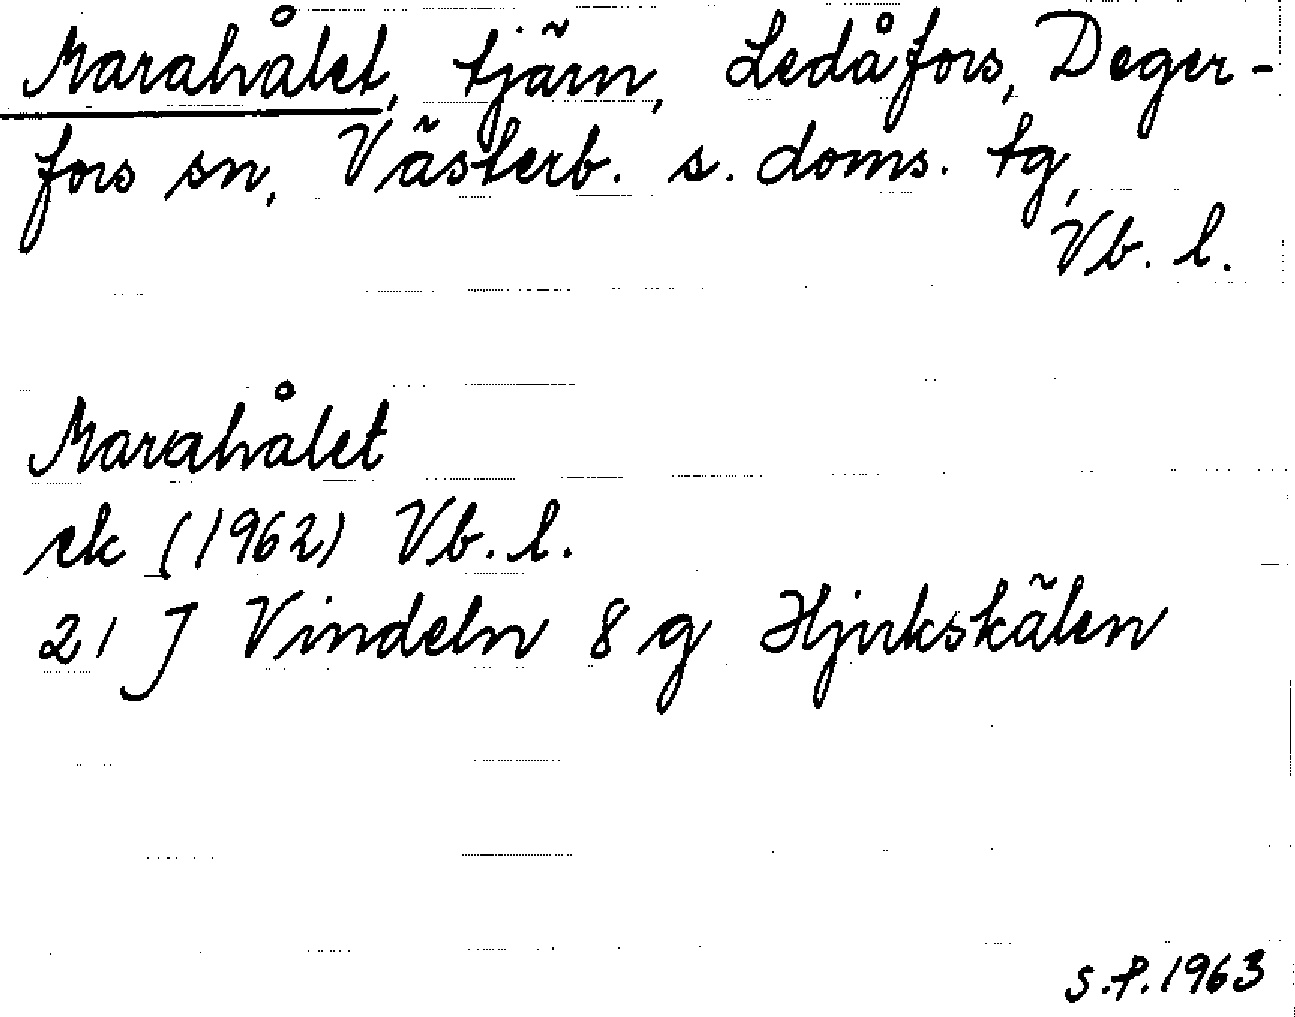 Marahålet, tjärn, Ledåfors, Deger-
fors sn, Västerb. s. doms. tg,
Vb. l.
Marahålet
ek (1962) Vb. l.
21 J Vindeln 8 g Hjukskälen
S.P. 1963